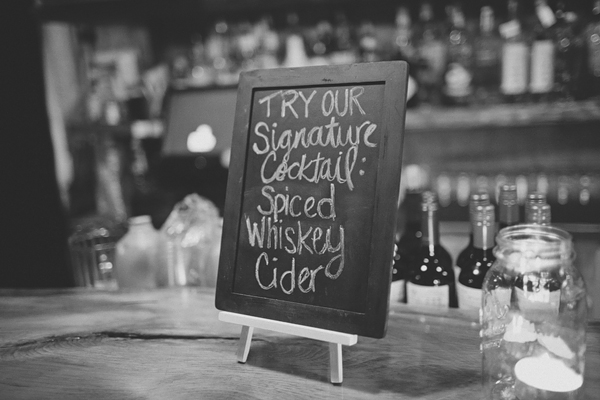 TRY OUR
Signature
Cocktail:
Spiced
Whiskey
Cider